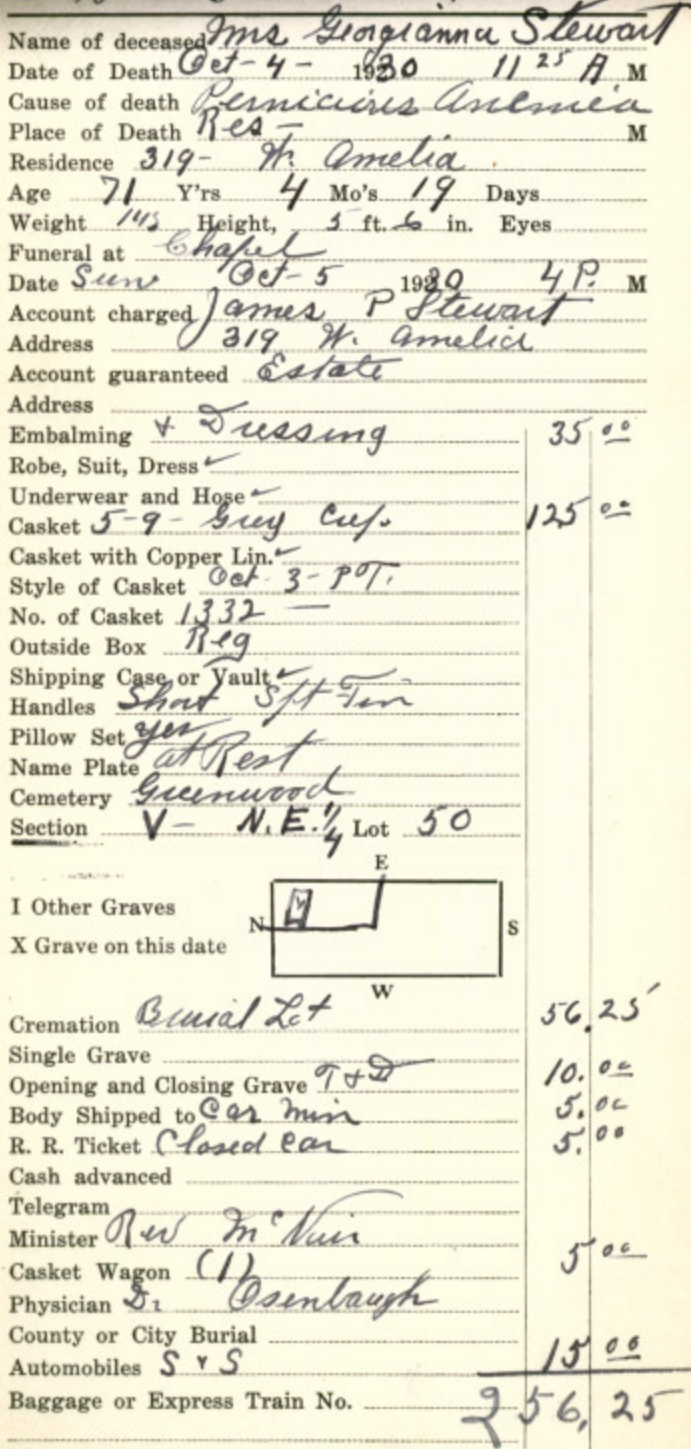 Name of deceased Mrs Georgianna Stewart
Date of Death Oct-4- 1930 11 25 A M
Cause of death Pernicious Anemia
Place of Death Res - M
Residence 319- W. Amelia
Age 71 Y'rs 4 Mo's 19 Days
Weight 145 Height, 5 ft. 6 in. Eyes
Funeral at Chapel
Date Sun Oct-5 1930 4 P. M
Account charged James P Stewart
Address 319 W. Amelia
Account guaranteed Estate
Address
Embalming + Dressing 35 00
Robe, Suit, Dress
Underwear and Hose
Casket 5-9- Grey Crep. 125 00
Casket with Copper Lin.
Style of Casket Oct 3- P.T.
No. of Casket 1332 —
Outside Box Reg
Shipping Case or Vault
Handles Short
Pillow Set yes
Name Plate At Rest
Cemetery Greenwood
Section V - N.E. 1/4 Lot 50
E
I Other Graves
N S
X Grave on this date
W
Cremation Burial Lot 56.25
Single Grave
Opening and Closing Grave T & D 10.00
Body Shipped to Car Min 5.00
R. R. Ticket Closed Car 5.00
Cash advanced
Telegram
Minister Rev McNair
Casket Wagon (1) 5 00
Physician Dr Osenbaugh
County or City Burial
Automobiles S & S 15 00
Baggage or Express Train No. 256.25